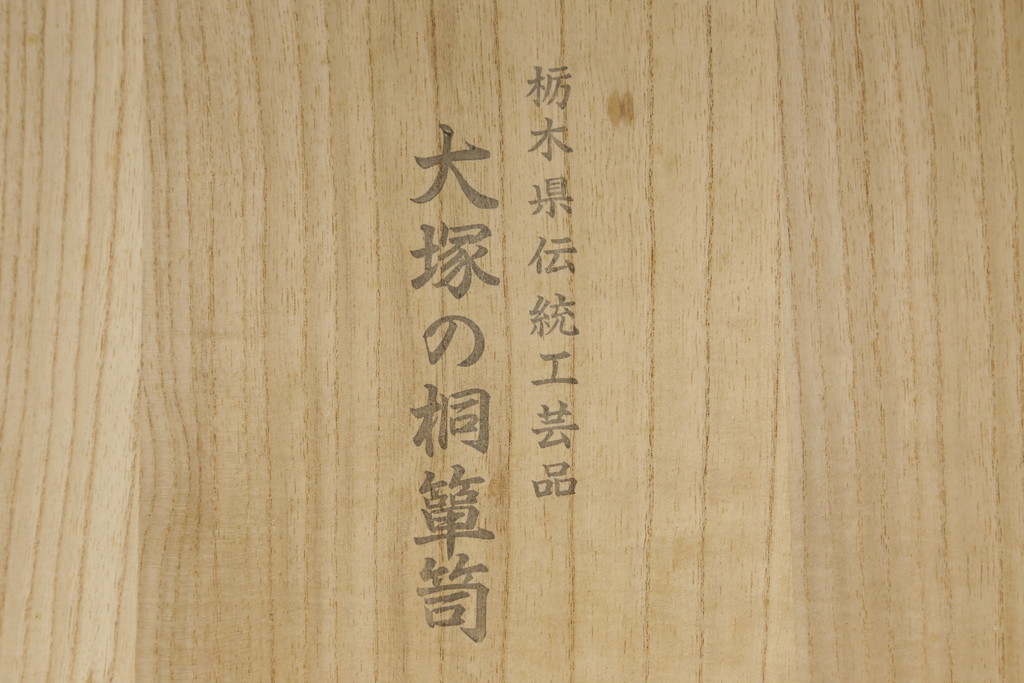 栃木県伝統工芸品
大塚の桐簞笥